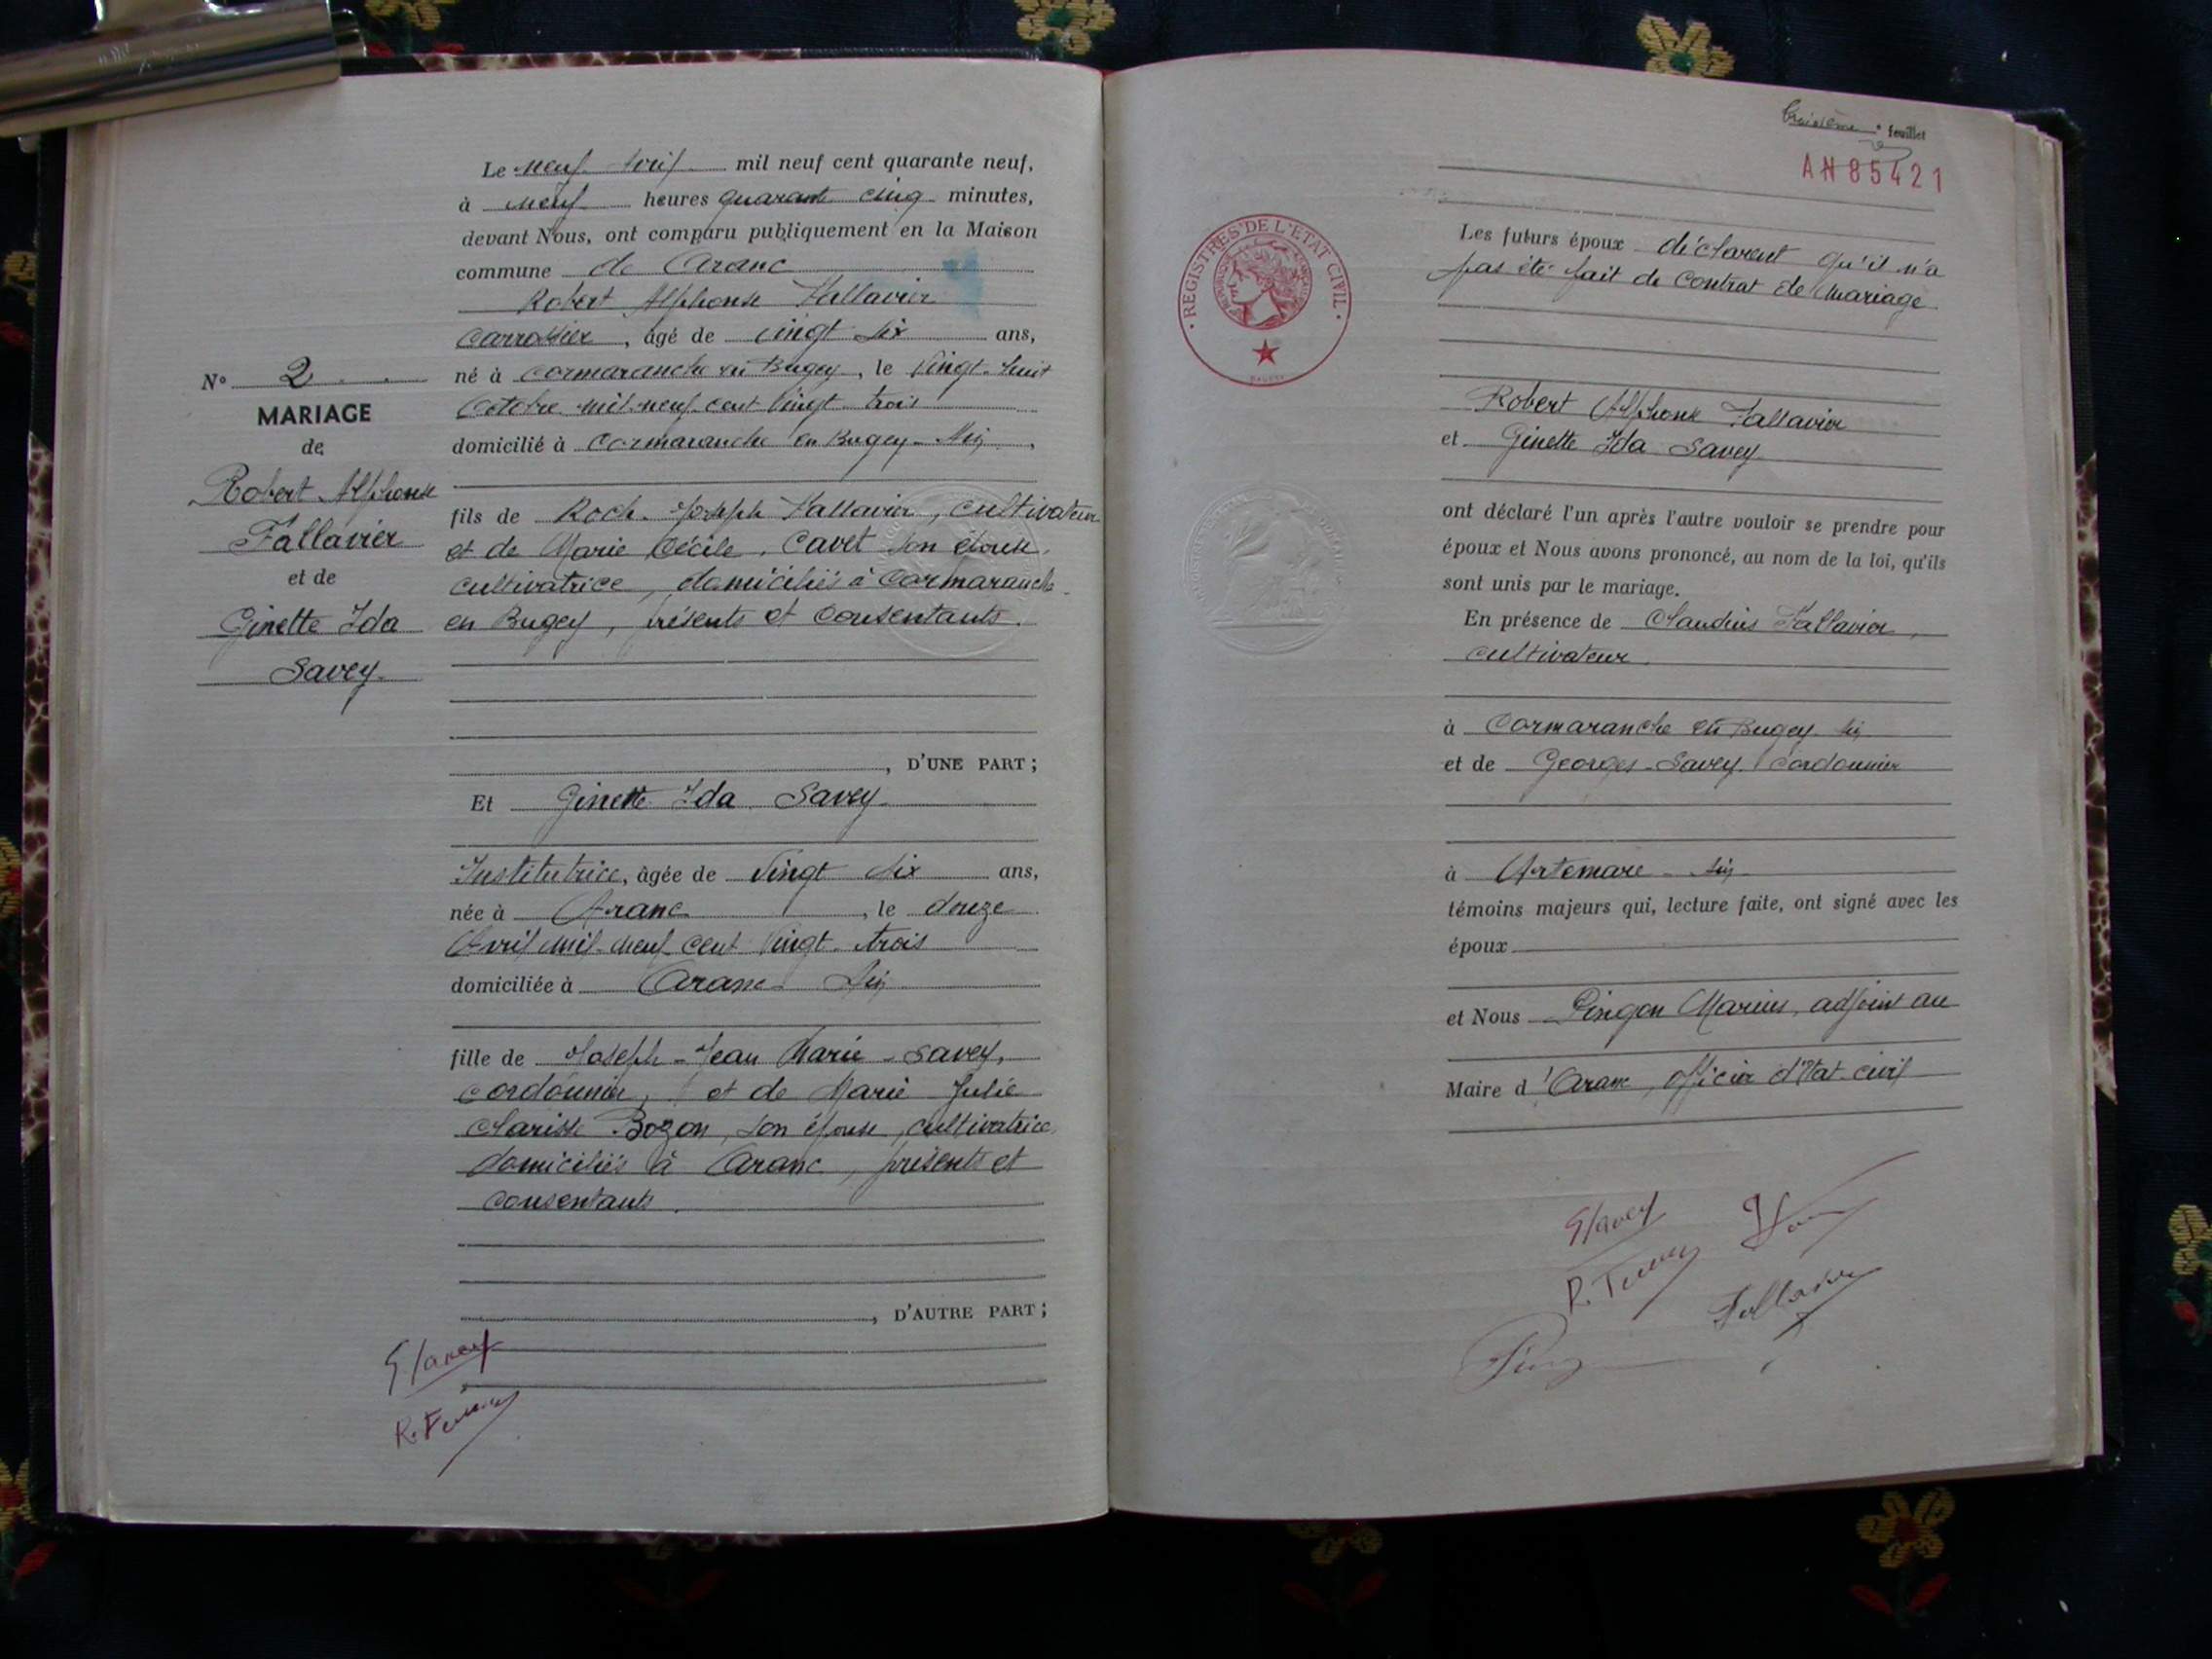 Le neuf Avril mil neuf cent quarante neuf,
à neuf heures quarante cinq minutes,
devant Nous, ont comparu publiquement en la Maison
commune de Aranc
Robert Alphonse Fallavier
Carrossier, âgé de vingt six ans,
né à Cormaranche en Bugey, le Vingt-huit
Octobre mil-neuf-cent Vingt-trois
domicilié à Cormaranche en Bugey - Ain,
fils de Roch-Joseph Fallavier, cultivateur
et de Marie Cécile Cavet son épouse,
cultivatrice, domiciliés à Cormaranche
en Bugey, présents et consentants.
, D'UNE PART ;
Et Ginette Ida Savey
Institutrice, âgée de Vingt six ans,
née à Aranc, le douze
Avril mil-neuf cent Vingt-trois
domiciliée à Aranc Ain
fille de Joseph-Jean Marie-Savey,
cordonnier, et de Marie Julie
Clarisse Bozon, son épouse, cultivatrice,
domiciliés à Aranc, présents et
consentants.
, D'AUTRE PART ;
N° 2
MARIAGE
de
Robert Alphonse
Fallavier
et de
Ginette Ida
Savey
G Savey
troisième e feuillet
AN85421
REGISTRES DE L'ETAT CIVIL
Les futurs époux déclarent qu'il n'a
pas été fait de Contrat de Mariage
Robert Alphonse Fallavier
et Ginette Ida Savey
ont déclaré l'un après l'autre vouloir se prendre pour
époux et Nous avons prononcé, au nom de la loi, qu'ils
sont unis par le mariage.
En présence de Claudius Fallavier,
cultivateur
à Cormaranche en Bugey Ain
et de Georges-Savey cordonnier
à Artemare - Ain
témoins majeurs qui, lecture faite, ont signé avec les
époux
et Nous Pingon Marius, adjoint au
Maire d'Aranc, officier d'état-civil
G Savey
Fallavier